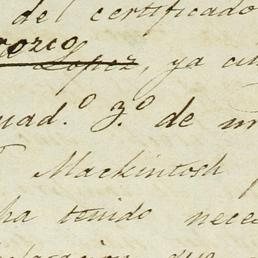 de certificado
orozco
Lopez, ya
uad.º 3.º de
Mackintosh
ha tenido nece